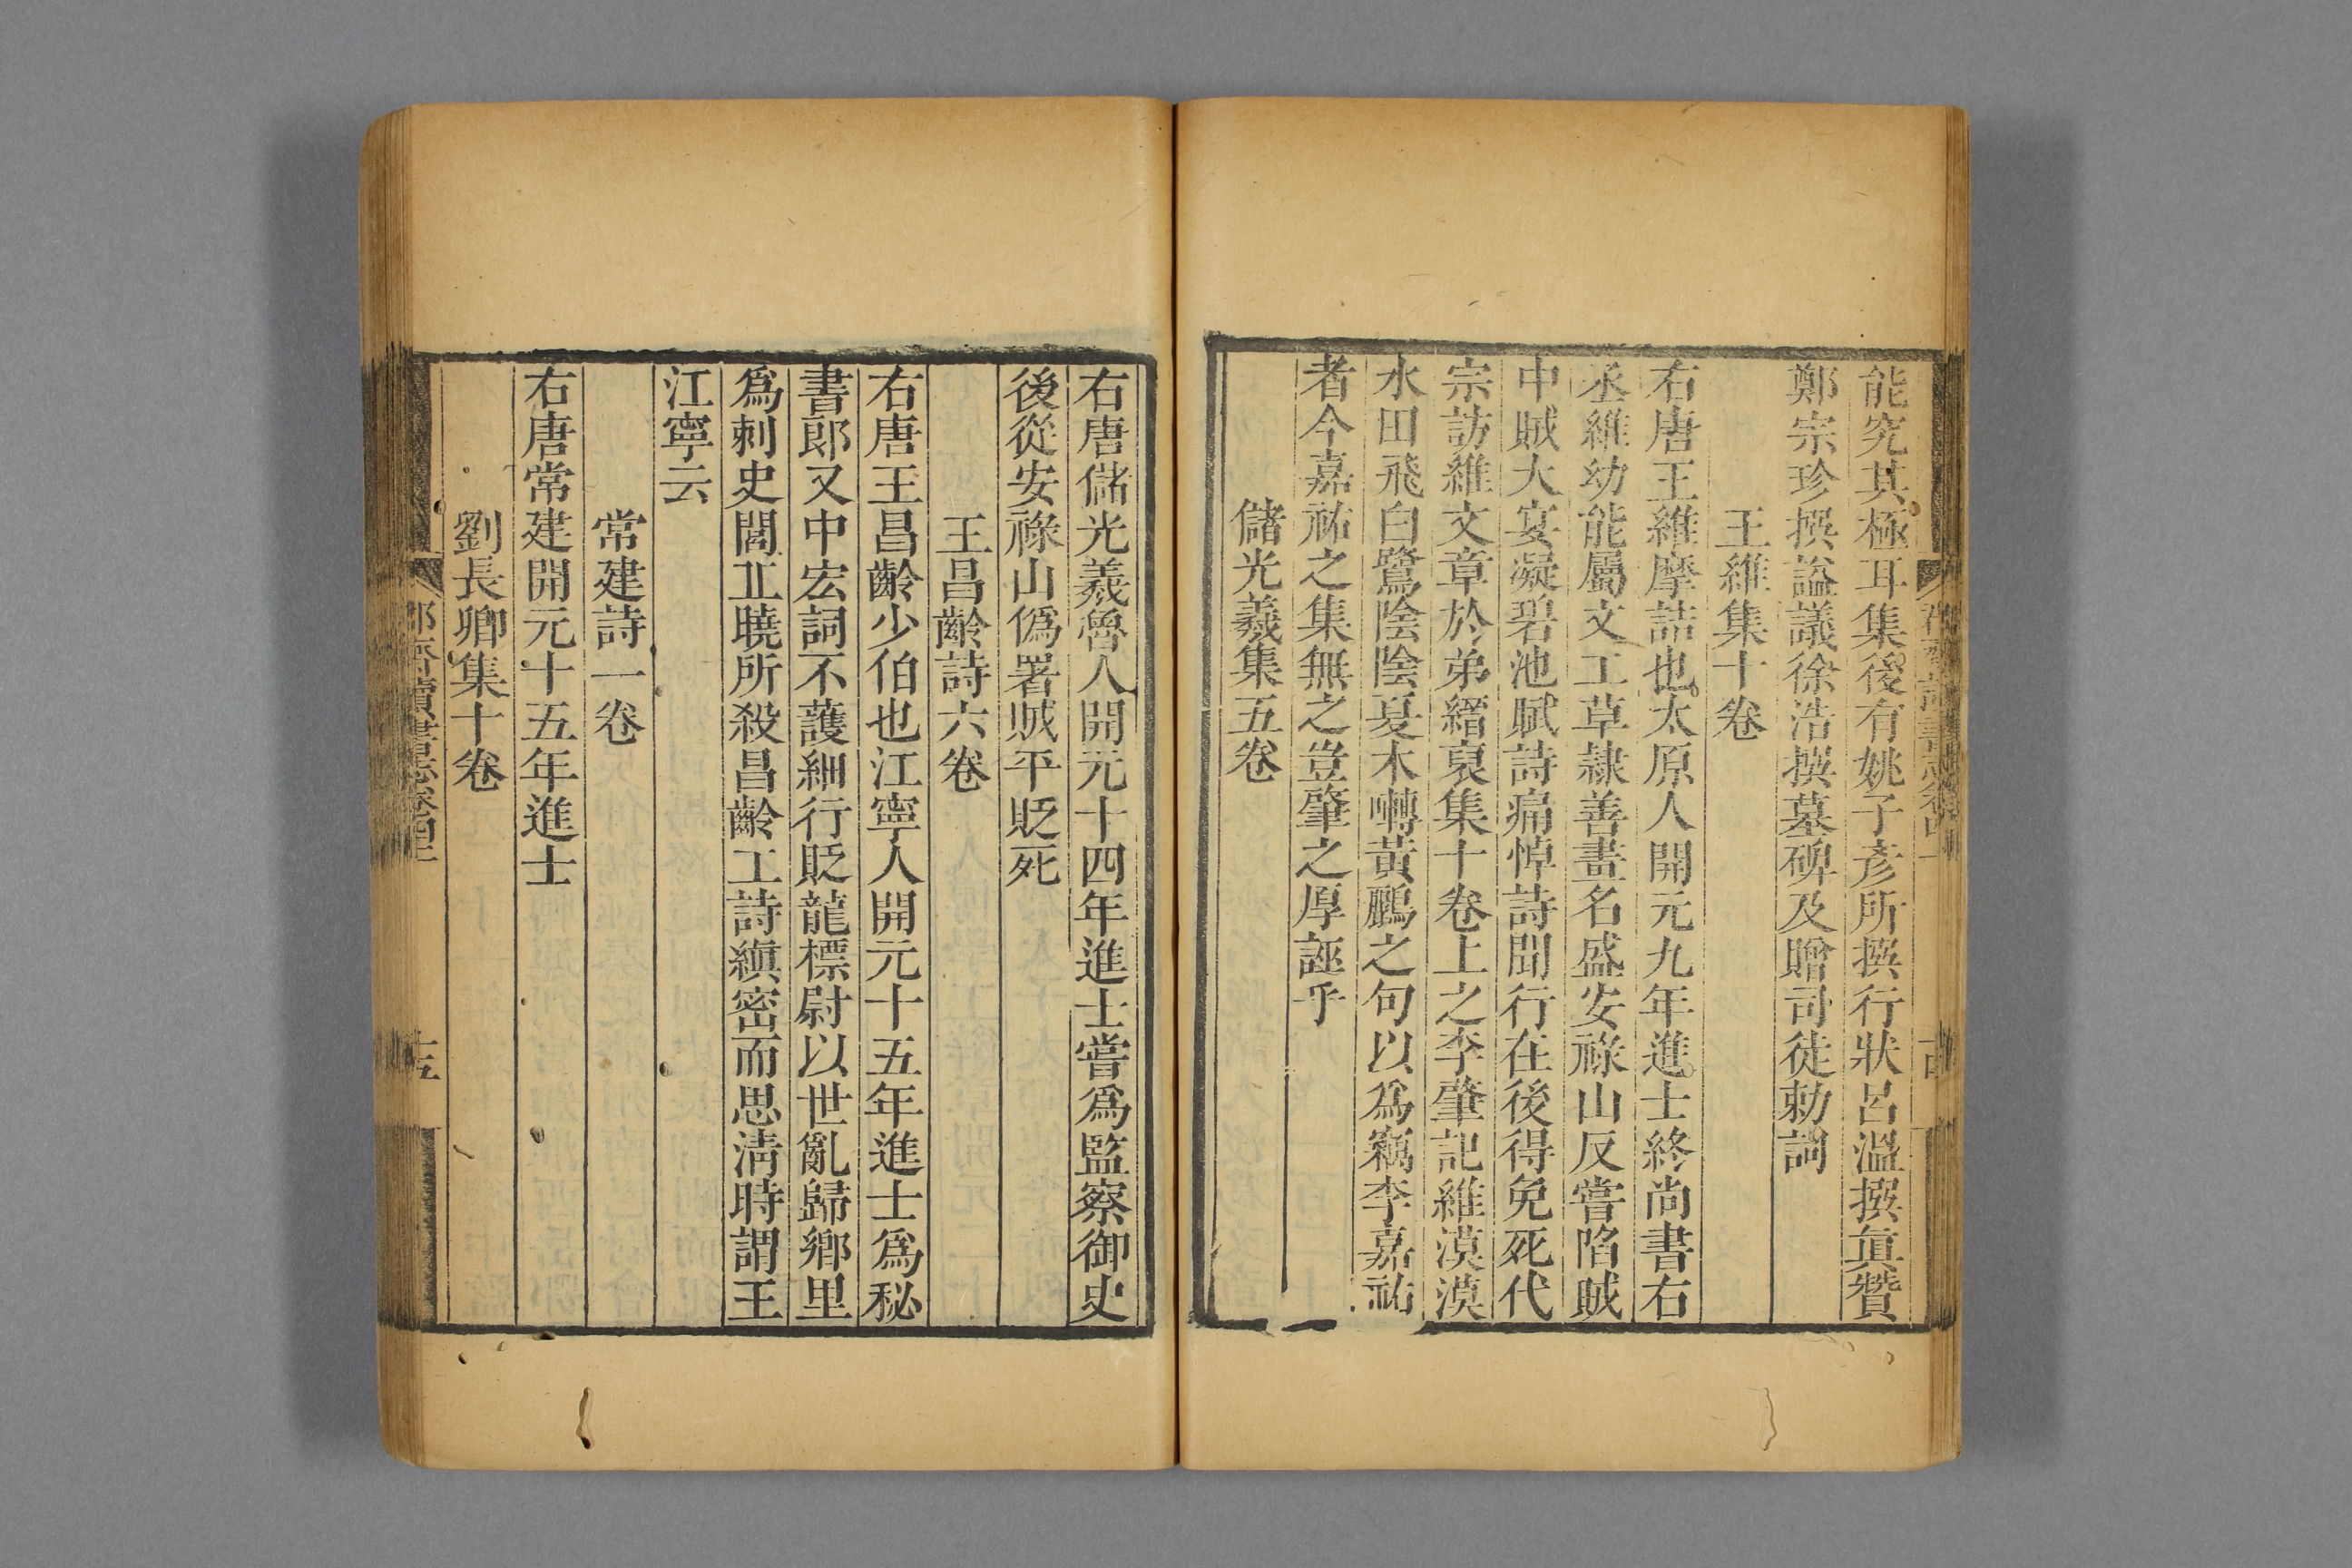 能究其極耳集後有姚子彥所撰行狀呂溫撰眞贊
鄭宗珍撰謚議徐浩撰墓碑及贈司徒勅詞
王維集十卷
右唐王維摩詰也太原人開元九年進士終尚書右
丞維幼能屬文工草隷善畫名盛安祿山反嘗陷賊
中賊大宴凝碧池賦詩痛悼詩聞行在後得免死代
宗訪維文章於弟縉裒集十卷上之李肇記維漠漠
水田飛白鷺陰陰夏木囀黃鸝之句以爲竊李嘉祐
者今嘉祐之集無之豈肇之厚誣乎
儲光羲集五卷
右唐儲光羲魯人開元十四年進士嘗爲監察御史
後從安祿山僞署賊平貶死
王昌齡詩六卷
右唐王昌齡少伯也江寧人開元十五年進士爲秘
書郎又中宏詞不護細行貶龍標尉以世亂歸鄉里
爲刺史閭丘曉所殺昌齡工詩縝密而思淸時謂王
江寧云
常建詩一卷
右唐常建開元十五年進士
劉長卿集十卷
郡齋讀書志卷四上
十五